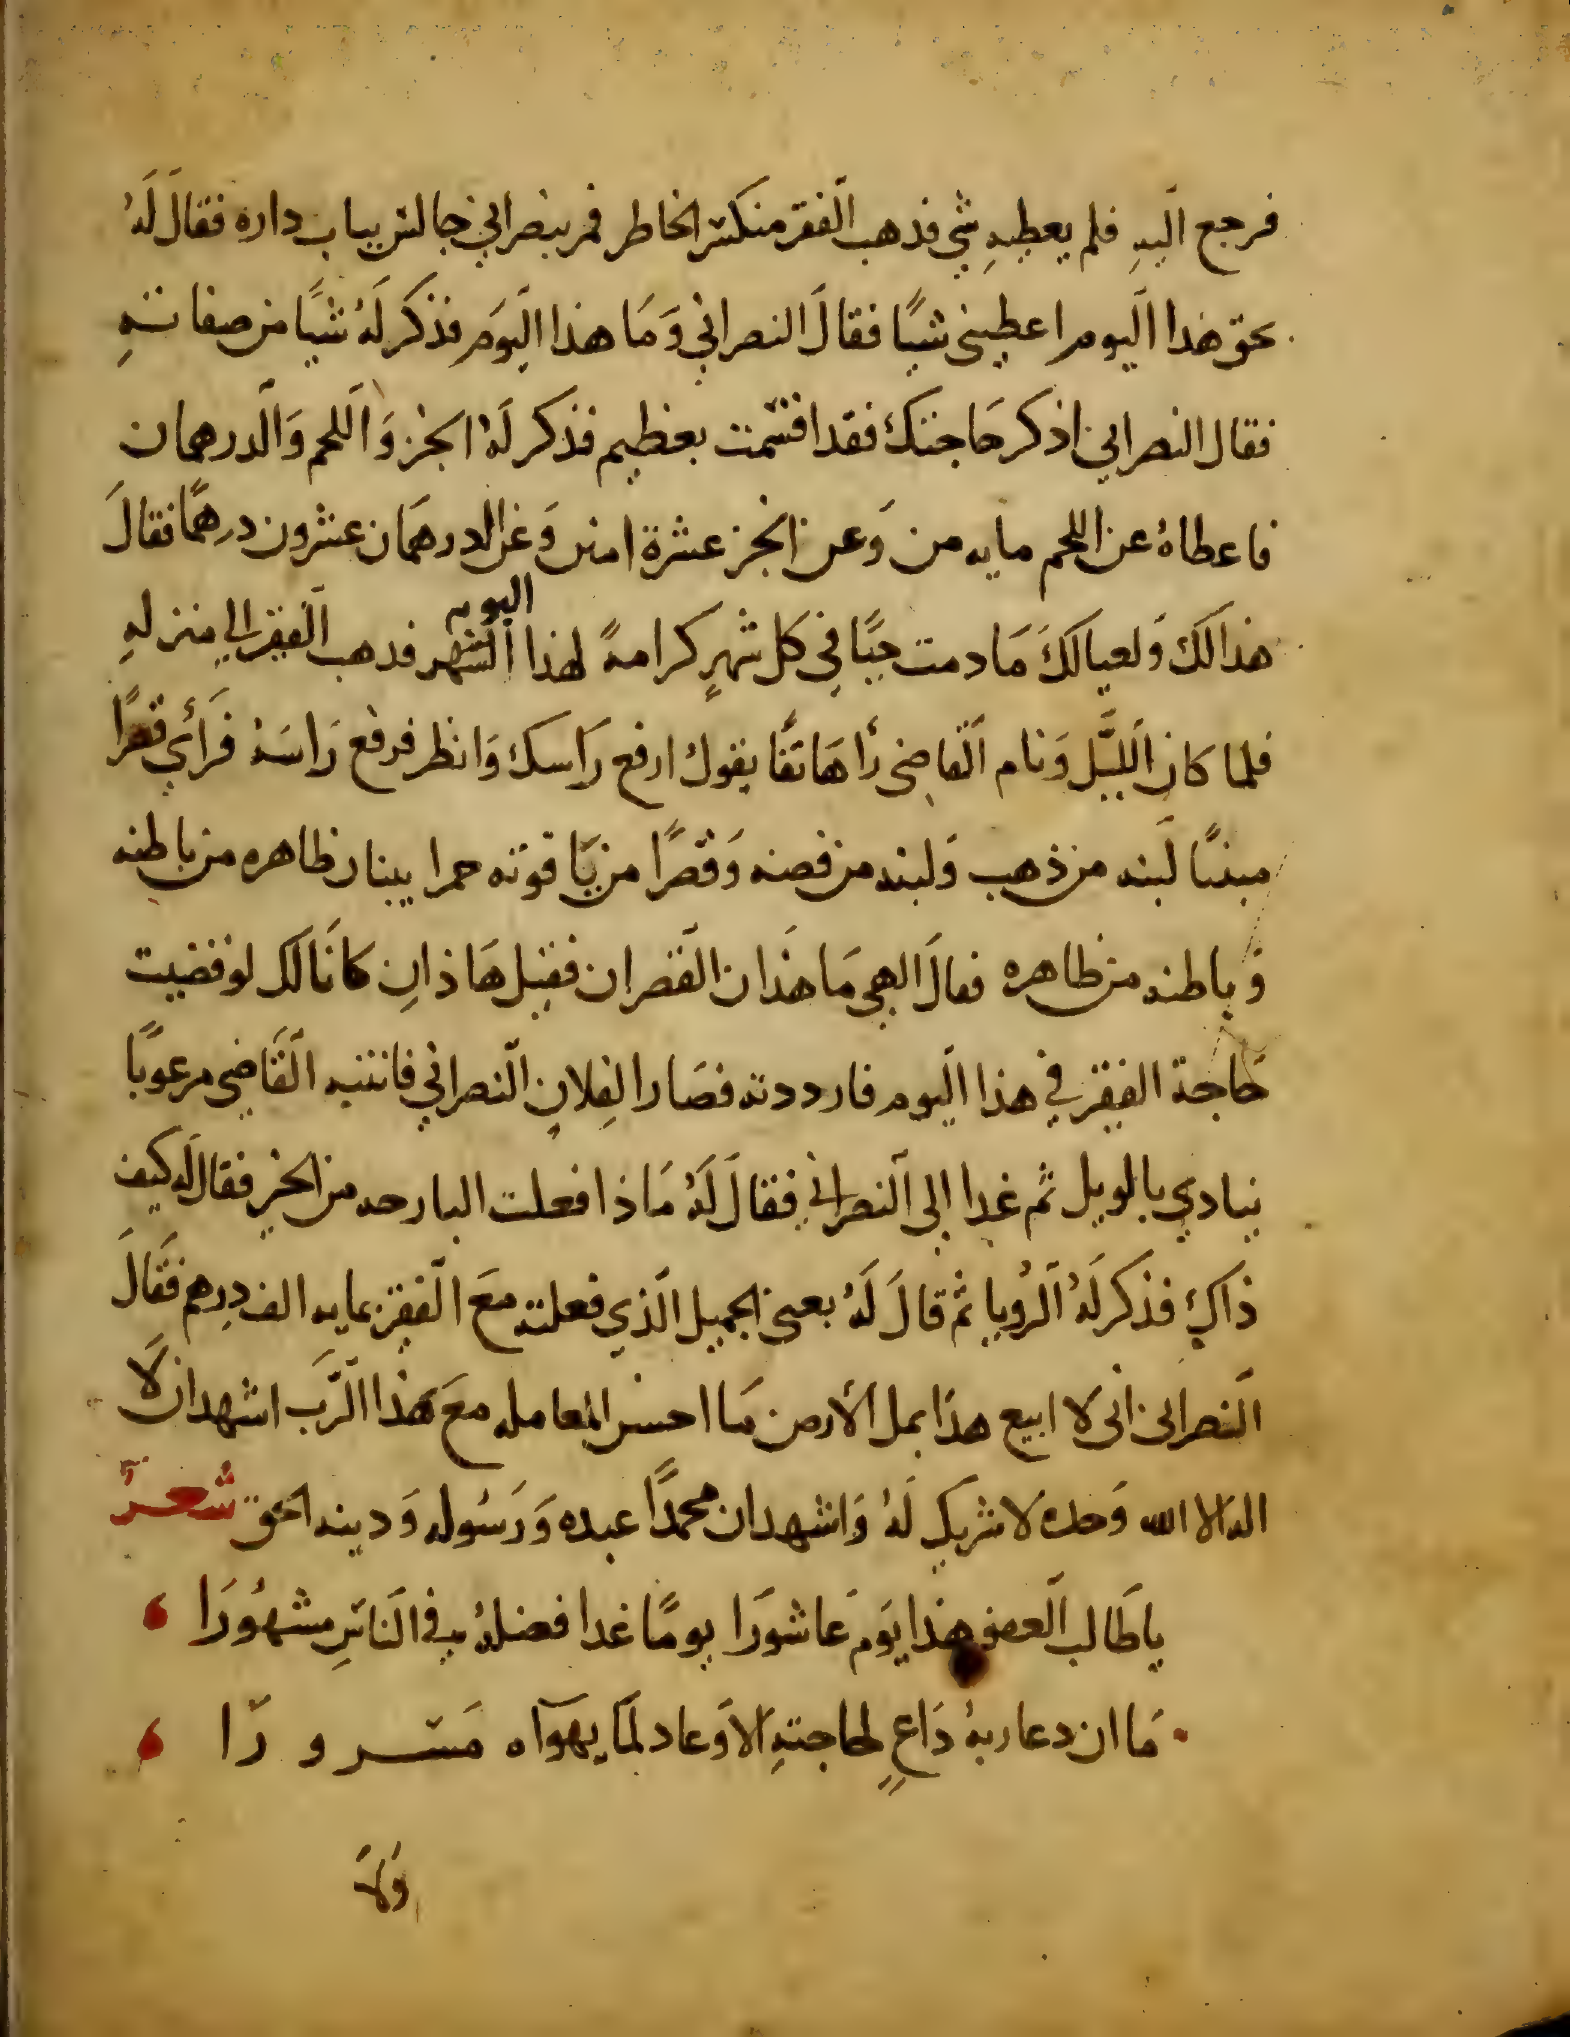 فرجع اليهِ فلم يعطيهِ شي فذهب الفقير منكسر الخاطر فمر بنصراني جالس بباب داره فقالَ لَهُ
بحق هذا اليوم اعطيني شيًا فقالَ النصراني وَمَا هذا اليَوَم فذكر لَهُ شيًا من صفاتهِ
فقال النصراني اذكر حَاجتك فقد اقسمت بعظيم فذكر لَهُ الخبز وَاللحم وَالدرهمان
فاعطاهُ عن اللحم مايه من وَعن الخبز عشرة امنن وَعن الدرهمَان عشرون درهمًا فقالَ
هذا لكَ وَلعيالكَ مَا دمت حيًا في كل شهرٍ كرامةً لهذا الشهر اليوم فذهب الفقير الي منزلهِ
فلما كان الليَّل وَنام القاضي رأ هَاتفًا يقول ارفع رَاسك وَانظر فرفع رَاسَهُ فَرَأي قصرًا
مبنيًا لَبنه من ذهب وَلبنه من فضه وَقصرًا من يَاقوته حمرا يبان ظاهره من باطنه
وَباطنه من ظاهره فقالَ الهي مَا هذَان القصران فقيل هَاذانِ كانَا لك لو قضيت
حَاجة الفقير في هذا اليوم فارددته فصَارا لفِلان النصراني فانتبه القَاضي مرعوبًا
ينادي بالويل ثم غدا إلى النصراني فقالَ لَهُ مَاذا فعلت البارحه من الخير فقالَ له كيف
ذاكِ فذكر لَهُ الرُويا ثم قالَ لَهُ بعني الجميل الَذي فعلته معَ الفقير بمايه الف دِرهم فقَالَ
النصراني اني لا ابيع هذَا بمل الأرض مَا احسن المعامله معَ هذا الرَّب اشهد ان لا
اله الا الله وَحده لا شريك لَهُ وَاشهد ان محمدًا عبده وَرَسُوله وَدينه الحق شعر
يا طَالب العفو هذا يَوم عَاشورَا يومًا غدا فضلهُ في الناسِ مشهُورَا
مَا ان دعا ربهُ دَاعٍ لحاجتهِ الا وَعاد لمَا يهوَاه مَسرورَا
وَلَا